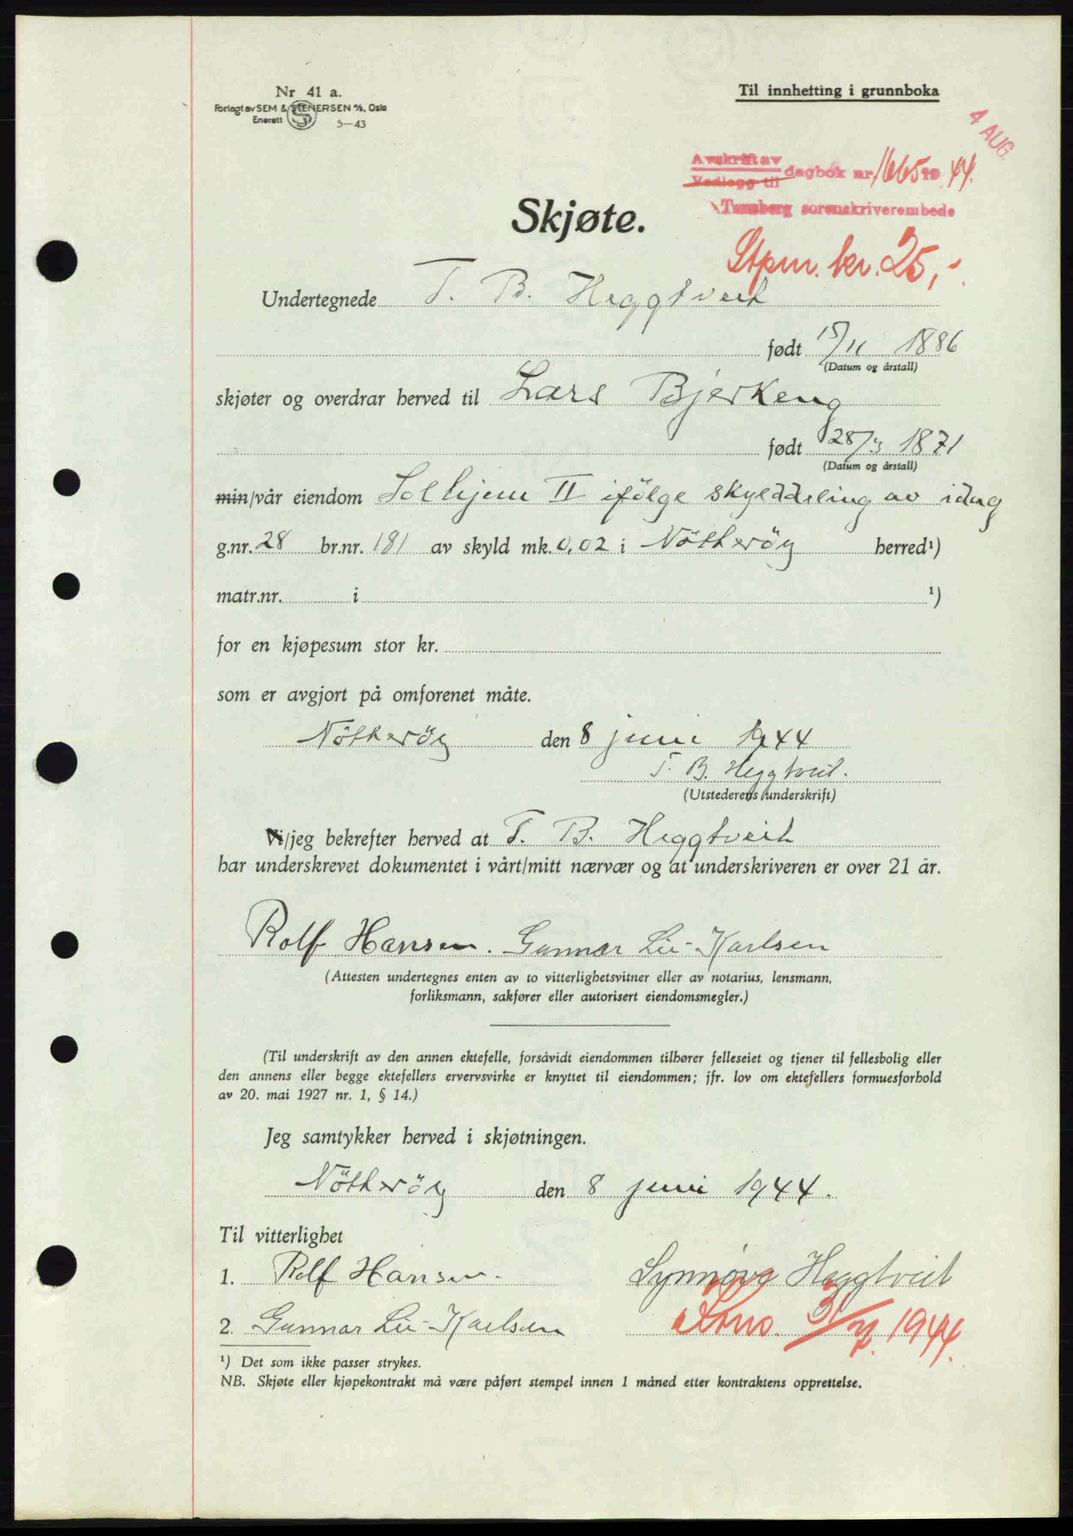 Nr 41 a.
Forlagt av SEM & STENERSEN A/S, Oslo
Enerett 5—43
Til innhefting i grunnboka
4 AUG.
Avskrift av
Vedlegg til dagbok nr 1665 19 44.
Tønsberg sorenskriverembede
Skjøte.
Stpm. kr. 25,-
Undertegnede T. B. Heggtveit
født 15/11 1886
(Datum og årstall)
skjøter og overdrar herved til Lars Bjerkeng
født 28/3 1871
(Datum og årstall)
min/vår eiendom Solhjem II ifölge skylddeling av idag
g.nr. 28 br.nr. 181 av skyld mk. 0,02 i Nötteröy herred¹)
matr.nr. i ¹)
for en kjøpesum stor kr.
som er avgjort på omforenet måte.
Nötteröy den 8 juni 1944
T. B. Heggtveit.
(Utstederens underskrift)
Vi/jeg bekrefter herved at T. B. Heggtveit
har underskrevet dokumentet i vårt/mitt nærvær og at underskriveren er over 21 år.
Rolf Hansen. Gunnar Lie-Karlsen
(Attesten undertegnes enten av to vitterlighetsvitner eller av notarius, lensmann,
forliksmann, sakfører eller autorisert eiendomsmegler.)
(Til underskrift av den annen ektefelle, forsåvidt eiendommen tilhører felleseiet og tjener til fellesbolig eller
den annens eller begge ektefellers ervervsvirke er knyttet til eiendommen; jfr. lov om ektefellers formuesforhold
av 20. mai 1927 nr. 1, § 14.)
Jeg samtykker herved i skjøtningen.
Nötteröy den 8 juni 1944.
Til vitterlighet
1. Rolf Hansen. Synnøve Heggtveit
2. Gunnar Lie-Karlsen 31/7. 1944.
¹) Det som ikke passer strykes.
NB. Skjøte eller kjøpekontrakt må være påført stempel innen 1 måned etter kontraktens opprettelse.